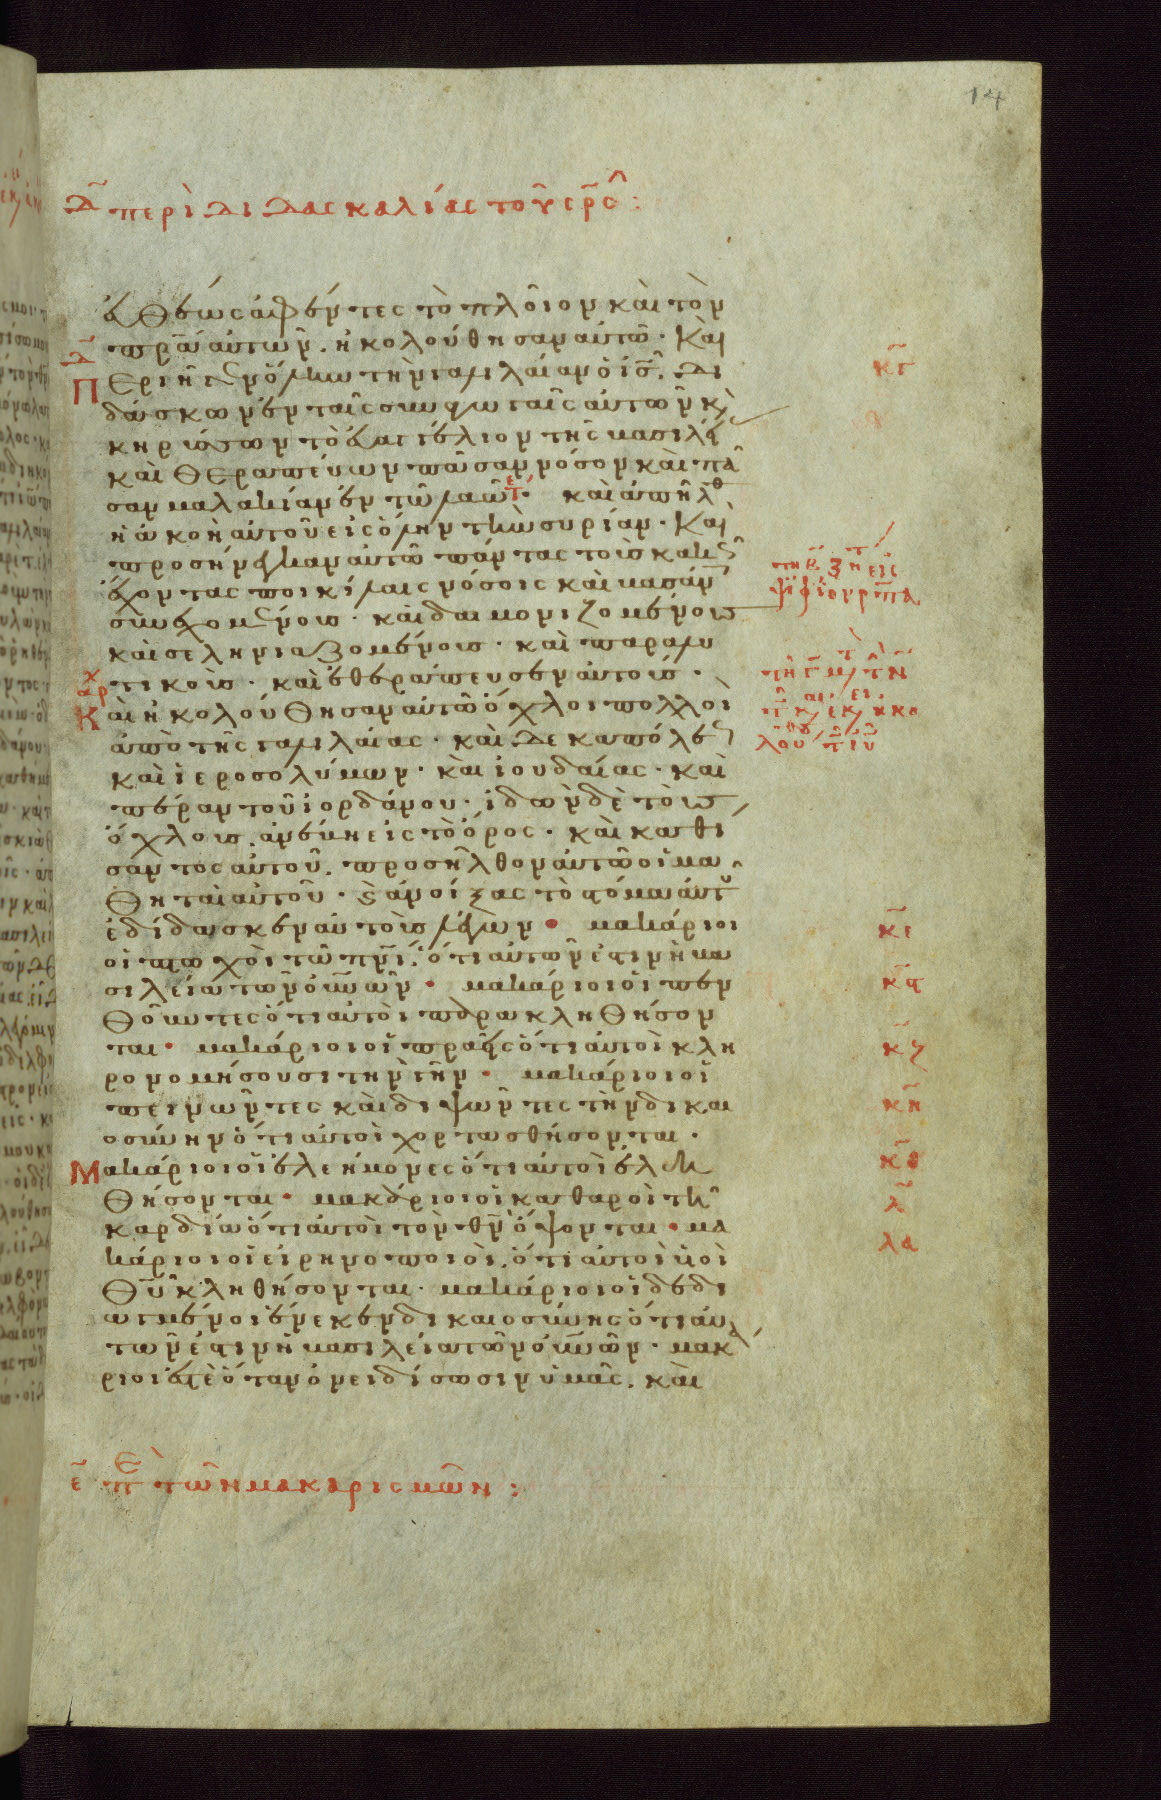 14
δ̄ περὶ διδασκαλίας τοῦ σρ̄ς:
εὐθέως ἀφέντες τὸ πλοῖον καὶ τὸν
πρ̄α αὐτῶν. ἠκολούθησαν αὐτῶ· Καὶ
δ̄
Περιῆγεν ὅλην τὴν γαλιλαίαν ὁ ις̄. δι
κ̄γ
δάσκων ἐν ταῖς συναγωγαῖς αὐτῶν κὶ
κηρύσσων τὸ εὐαγγέλιον τῆς βασιλεί
καὶ θεραπεύων πᾶσαν νόσον καὶ πᾶ
σαν μαλακίαν ἐν τῶ λαῶ· καὶ ἀπῆλθ
ἡ ἀκοὴ αὐτοῦ εἰς ὅλην τὴν συρίαν· Καὶ
προσήνεγκαν αὐτῶ πάντας τοὺς κακῶς
ἔχοντας ποικίλαις νόσοις καὶ βασάν
συνεχομένους· καὶ δαιμονιζομένους
καὶ σεληνιαζομένους· καὶ παραλυ
τικούς· καὶ ἐθεράπευσεν αὐτούς·
ἀρχ
Καὶ ἠκολούθησαν αὐτῶ ὄχλοι πολλοὶ
ἀπὸ τῆς γαλιλαίας· καὶ δεκαπόλε
καὶ ἱεροσολύμων· καὶ ἰουδαίας· καὶ
πέραν τοῦ ἰορδάνου· ἰδὼν δὲ τοὺς
ὄχλους. ἀνέβη εἰς τὸ ὄρος· καὶ καθί
σαντος αὐτοῦ. προσῆλθον αὐτῶ οἱ μα
θηταὶ αὐτοῦ· κὶ ἀνοίξας τὸ στόμα αὐτοῦ
ἐδίδασκεν αὐτοὺς λέγων· μακάριοι
κ̄ε
οἱ πτωχοὶ τῶ πν̄ι, ὅτι αὐτῶν ἐστιν ἡ βα
σιλεία τῶν οὐν̄ῶν· μακάριοι οἱ πεν
κ̄ϛ
θοῦντες ὅτι αὐτοὶ παρακληθήσον
ται· μακάριοι οἱ πραεῖς ὅτι αὐτοὶ κλη
κ̄ζ
ρονομήσουσι τὴν γῆν· μακάριοι οἱ
πεινῶντες καὶ διψῶντες τὴν δικαι
κ̄η
οσύνην ὅτι αὐτοὶ χορτασθήσονται·
Μακάριοι οἱ ἐλεήμονες ὅτι αὐτοὶ ἐλεη
κ̄θ
θήσονται· μακάριοι οἱ καθαροὶ τῆ
λ̄
καρδία ὅτι αὐτοὶ τὸν θν̄ ὄψονται· μα
λα
κάριοι οἱ εἰρηνοποιοὶ. ὅτι αὐτοὶ υἱοὶ
θῡ κληθήσονται· μακάριοι οἱ δεδι
ωγμένοι ἕνεκεν δικαιοσύνης ὅτι αὐ
τῶν ἐστιν ἡ βασιλεία τῶν οὐν̄ῶν· μακά
ριοι ἐστὲ ὅταν ὀνειδίσωσιν ὑμᾶς. καὶ
ε̄ περὶ τῶν μακαρισμῶν: